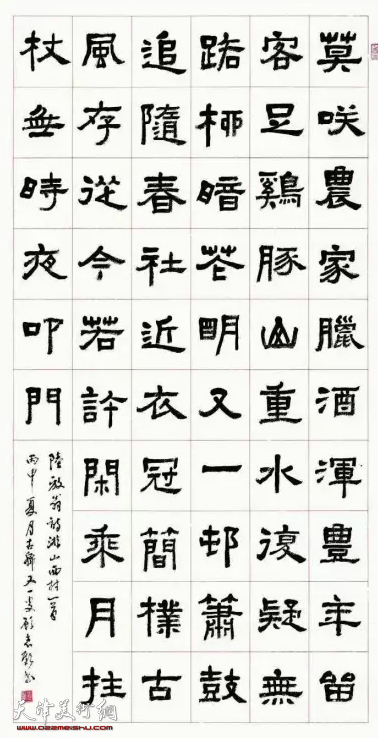 莫咲農家臘酒渾豐年留
客足鷄豚山重水復疑無
路柳暗花明又一邨簫鼓
追隨春社近衣冠簡樸古
風存從今若許閑乘月拄
杖無時夜叩門
陸放翁詩游山西村一首
丙申夏月古
天津美術網
www.022meishu.com